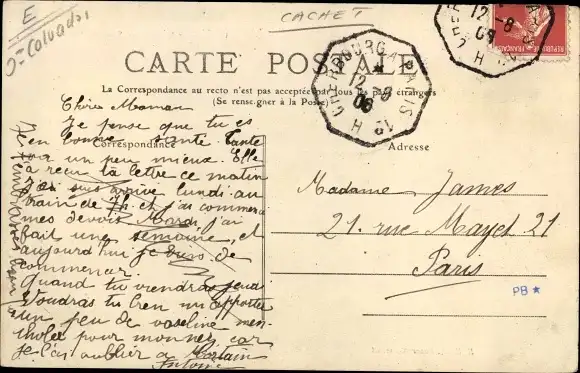 E
Calvados
CACHET
CARTE POSTALE
La Correspondance au recto n'est pas acceptée par tous les pays étrangers
(Se renseigner à la Poste)
Correspondance
Adresse
CHERBOURG A PARIS
12-8
08
H
REPUBLIQUE FRANÇAISE
12-8
08
H
Chère Maman
Je pense que tu es
en bonne santé. Tante
va un peu mieux. Elle
a reçu ta lettre ce matin
J'ai suis arrivé lundi au
train de 7h et j'ai commencé
mes devoirs Mardi j'ai
fait une semaine, et
aujourd'hui je viens de
commencer.
Quand tu viendras jeudi
Voudras tu bien m'apporter
un peu de vaseline men-
tholée pour mon nez, car
je l'ai oublier à Mortain
Antoine
Je t'embrasse bien
Madame James
21. rue Mayet 21
Paris
PB